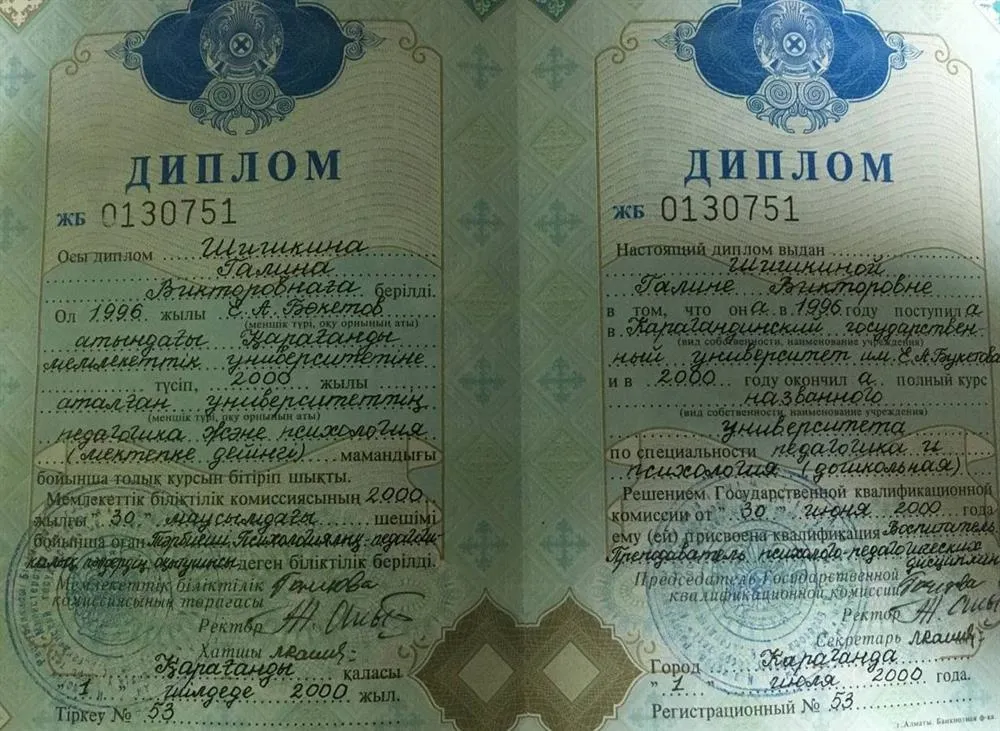 ДИПЛОМ
ЖБ 0130751
Осы диплом Шишкина
Галина
Викторовнаға берілді.
Ол 1996 жылы Е.А. Бөкетов
(меншік түрі, оқу орнының аты)
атындағы Қарағанды
мемлекеттік университетіне
түсіп, 2000 жылы
аталған университеттің
(меншік түрі, оқу орнының аты)
педагогика және психология
(мектепке дейінгі) мамандығы
бойынша толық курсын бітіріп шықты.
Мемлекеттік біліктілік комиссиясының 2000
жылғы "30" маусымдағы шешімі
бойынша оған Тәрбиеші Психологиялық-педагоги-
калық пәндердің оқытушысы деген біліктілік берілді.
Мемлекеттік біліктілік
комиссиясының төрағасы
Ректор
Хатшы
Қарағанды қаласы
"1" шілдеде 2000 жыл.
Тіркеу № 53
ДИПЛОМ
ЖБ 0130751
Настоящий диплом выдан
Шишкиной
Галине Викторовне
в том, что она в 1996 году поступила
в Карагандинский государствен-
(вид собственности, наименование учреждения)
ный университет им. Е.А Букетова
и в 2000 году окончила полный курс
названного
(вид собственности, наименование учреждения)
университета
по специальности педагогика и
психология (дошкольная)
Решением Государственной квалификационной
комиссии от "30" июня 2000 года
ему (ей) присвоена квалификация Воспитатель
Преподаватель психолого-педагогических
дисциплин
Председатель Государственной
квалификационной комиссии
Ректор
Секретарь
Город Караганда
"1" июля 2000 года.
Регистрационный № 53
г. Алматы. Банкнотная ф-ка.